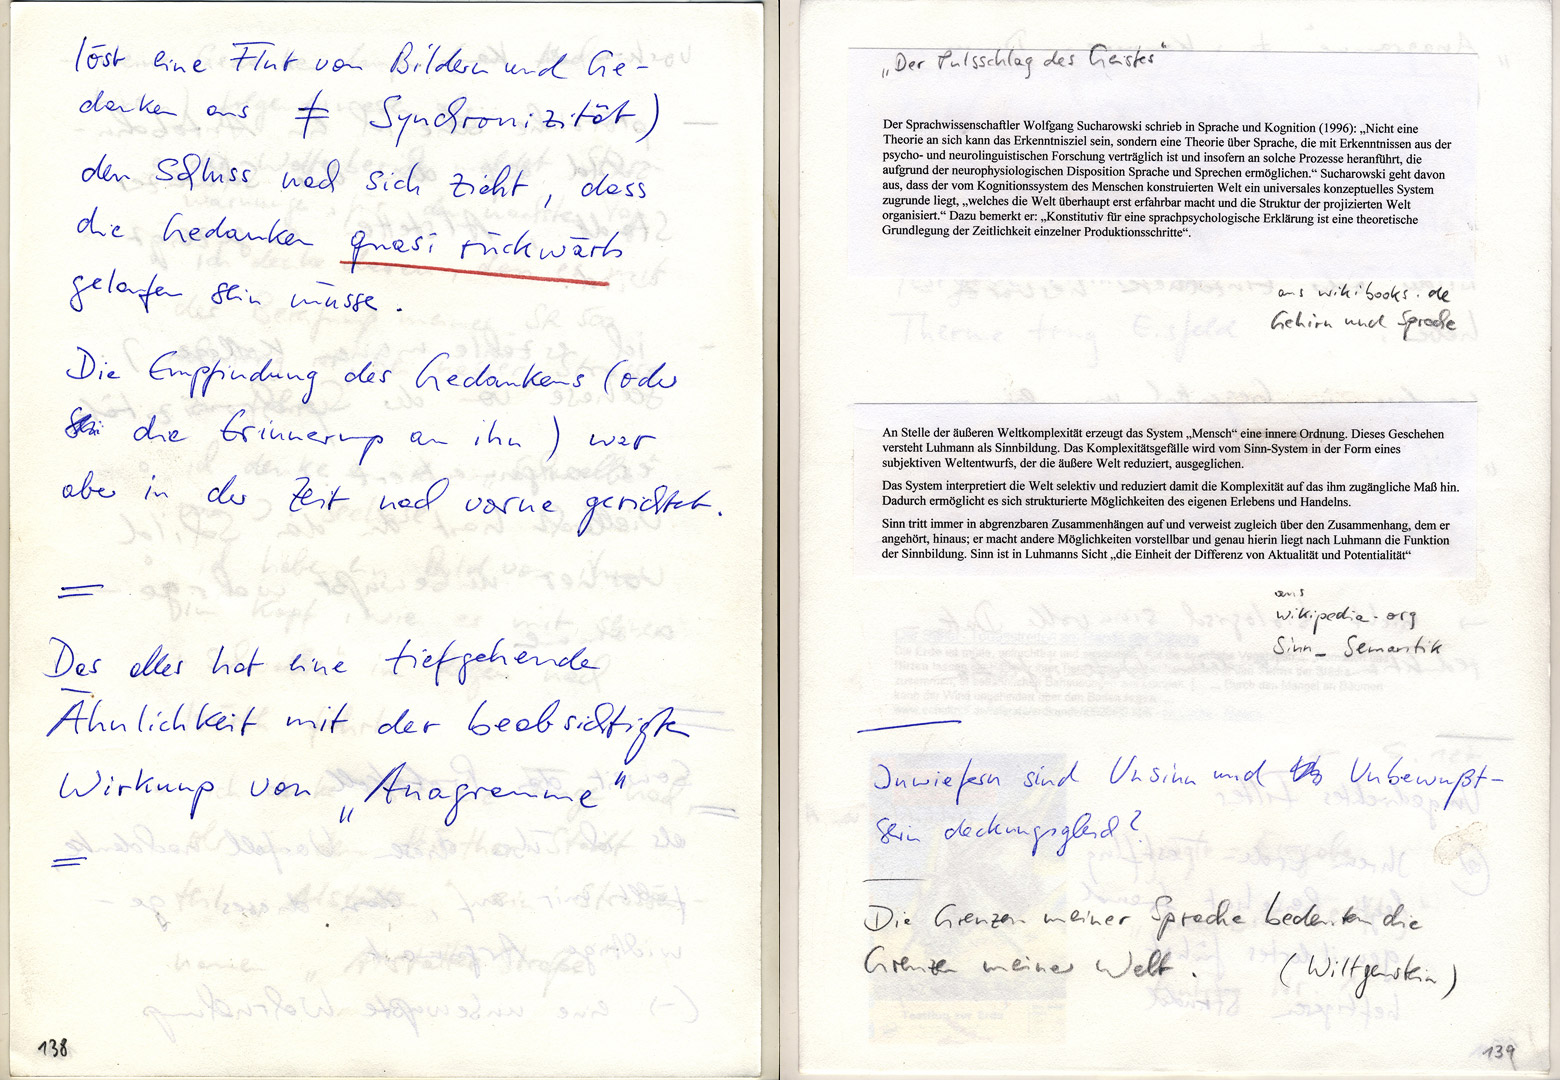 löst eine Flut von Bildern und Ge-
danken aus ≠ Synchronizität)
den Schluss nach sich zieht, dass
die Gedanken quasi rückwärts
gelaufen sein müsse.
Die Empfindung des Gedankens (oder
die Erinnerung an ihn) war
aber in der Zeit nach vorne gerichtet.
=
Das alles hat eine tiefgehende
Ähnlichkeit mit der beabsichtigten
Wirkung von „Anagramme"
=
138
„Der Pulsschlag des Geistes"
Der Sprachwissenschaftler Wolfgang Sucharowski schrieb in Sprache und Kognition (1996): „Nicht eine
Theorie an sich kann das Erkenntnisziel sein, sondern eine Theorie über Sprache, die mit Erkenntnissen aus der
psycho- und neurolinguistischen Forschung verträglich ist und insofern an solche Prozesse heranführt, die
aufgrund der neurophysiologischen Disposition Sprache und Sprechen ermöglichen.“ Sucharowski geht davon
aus, dass der vom Kognitionssystem des Menschen konstruierten Welt ein universales konzeptuelles System
zugrunde liegt, „welches die Welt überhaupt erst erfahrbar macht und die Struktur der projizierten Welt
organisiert.“ Dazu bemerkt er: „Konstitutiv für eine sprachpsychologische Erklärung ist eine theoretische
Grundlegung der Zeitlichkeit einzelner Produktionsschritte“.
aus wikibooks.de
Gehirn und Sprache
An Stelle der äußeren Weltkomplexität erzeugt das System „Mensch“ eine innere Ordnung. Dieses Geschehen
versteht Luhmann als Sinnbildung. Das Komplexitätsgefälle wird vom Sinn-System in der Form eines
subjektiven Weltentwurfs, der die äußere Welt reduziert, ausgeglichen.
Das System interpretiert die Welt selektiv und reduziert damit die Komplexität auf das ihm zugängliche Maß hin.
Dadurch ermöglicht es sich strukturierte Möglichkeiten des eigenen Erlebens und Handelns.
Sinn tritt immer in abgrenzbaren Zusammenhängen auf und verweist zugleich über den Zusammenhang, dem er
angehört, hinaus; er macht andere Möglichkeiten vorstellbar und genau hierin liegt nach Luhmann die Funktion
der Sinnbildung. Sinn ist in Luhmanns Sicht „die Einheit der Differenz von Aktualität und Potentialität“
aus
wikipedia.org
Sinn_Semantik
Inwiefern sind Unsinn und Unbewußt-
sein deckungsgleich?
Die Grenzen meiner Sprache bedeuten die
Grenzen meiner Welt. (Wittgenstein)
139